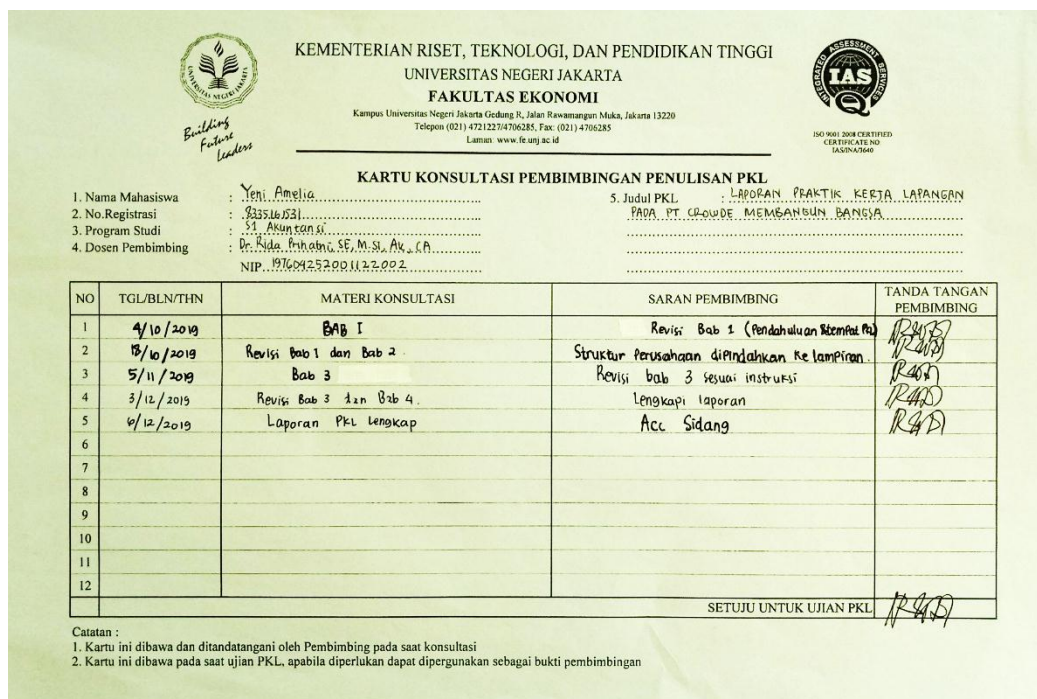 KEMENTERIAN RISET, TEKNOLOGI, DAN PENDIDIKAN TINGGI
UNIVERSITAS NEGERI JAKARTA
FAKULTAS EKONOMI
Kampus Universitas Negeri Jakarta Gedung R, Jalan Rawamangun Muka, Jakarta 13220
Telepon (021) 4721227/4706285, Fax: (021) 4706285
Laman: www.fe.unj.ac.id
UNIVERSITAS NEGERI JAKARTA
Building
Future
Leaders
INTEGRATED ASSESSMENT SERVICES
IAS
ISO 9001 2008 CERTIFIED
CERTIFICATE NO
IAS/INA/3640
KARTU KONSULTASI PEMBIMBINGAN PENULISAN PKL
1. Nama Mahasiswa : Yeni Amelia
2. No.Registrasi : 8335161531
3. Program Studi : S1 Akuntansi
4. Dosen Pembimbing : Dr. Rida Prihatni, SE, M.Si, Ak, CA
NIP. 197604252001122002
5. Judul PKL : LAPORAN PRAKTIK KERJA LAPANGAN
PADA PT CROWDE MEMBANGUN BANGSA
NO TGL/BLN/THN MATERI KONSULTASI SARAN PEMBIMBING TANDA TANGAN PEMBIMBING
1 4/10/2019 BAB I Revisi Bab 1 (Pendahuluan
2 18/10/2019 Revisi Bab 1 dan Bab 2 Struktur Perusahaan dipindahkan ke lampiran.
3 5/11/2019 Bab 3 Revisi bab 3 sesuai instruksi
4 3/12/2019 Revisi Bab 3 dan Bab 4. Lengkapi laporan
5 6/12/2019 Laporan PKL Lengkap Acc Sidang
6
7
8
9
10
11
12
SETUJU UNTUK UJIAN PKL
Catatan :
1. Kartu ini dibawa dan ditandatangani oleh Pembimbing pada saat konsultasi
2. Kartu ini dibawa pada saat ujian PKL, apabila diperlukan dapat dipergunakan sebagai bukti pembimbingan